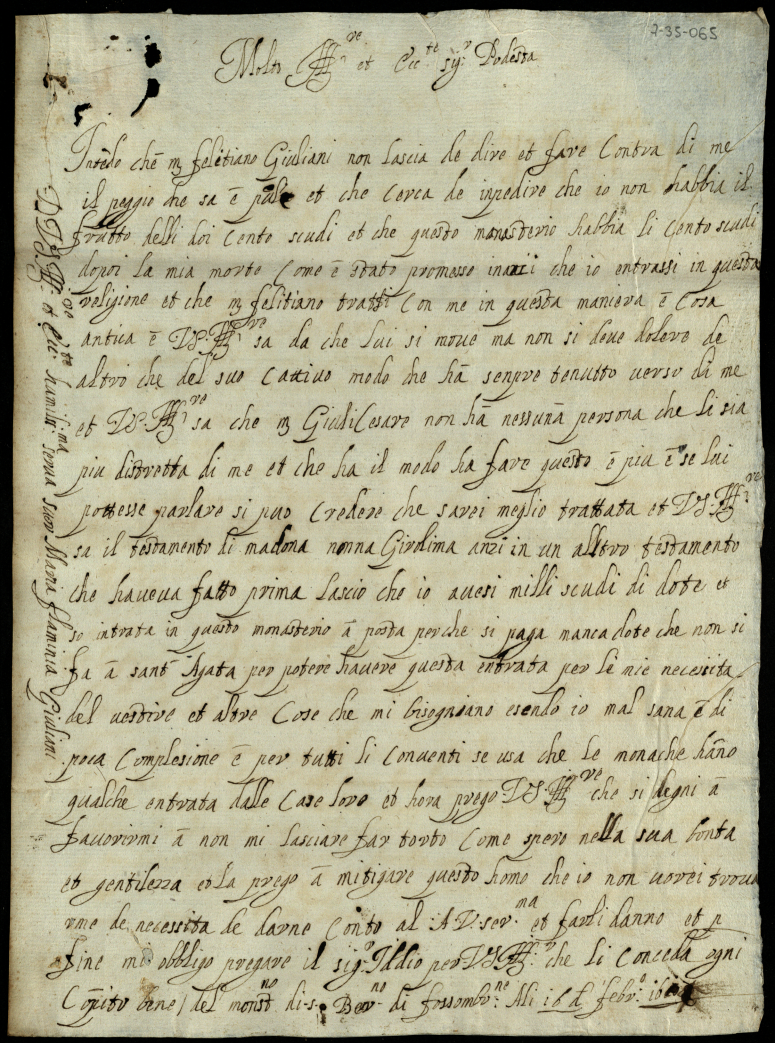 7-35-065
Molto Ill.re et Ecc.te sig.r Podesta
Intēdo chē m felitiano Giuliani non lascia de dire et fare Contra di me
il peggio che sa ē pole et che cerca de inpedire che io non habbia il
frutto delli doi Cento scudi et che questo monasterio habbia li Cento scudi
dopoi la mia morte Come ē stato promesso inanzi che io entrassi in questa
religione et che m felitiano tratti Con me in questa maniera ē Cosa
antica ē V.S. Ill.re sa da che lui si move ma non si deve dolere de
altro che del suo Cattivo modo che hā senpre tenutto verso di me
et V.S. Ill.re sa che m Giuli Cesare non hā nessunā persona che li sia
piu distretta di me et che ha il modo ha fare questo ē piu ē se lui
pottesse parlare si puo Credere che sarei meglio trattata et V.S. Ill.re
sa il testamento di madōna nonna Girolima anzi in un alltro testamento
che haveva fatto prima Lascio che io avesi milli scudi di dote et
so intrata in questo monasterio ā posta perche si paga manca dote che non si
fa ā sant Agata per potere havere questa entrata per le mie necessita
del vestire et altre Cose che mi bisogniano esendo io mal sana ē di
poca Complesione ē per tutti li Conventi se usa che le monache hāno
qualche entrata dalle Case loro et hora prego V.S. Ill.re che si degni ā
favorirmi ā non mi lasciare far torto Come spero nella sua bonta
et gentilezza et la prego ā mitigare questo homo che io non vorei trova
rme de necessita de darne Conto al A.V. ser.ma et farli danno et p
fine mi obbligo pregare il sig.r Iddio per V.S. Ill.re che li Conceda ogni
Cōpito bene / del monst.no di s. Ber.no di fossombr.ne Alli 16 d febr.o
D V.S. Ill.re et Ecc.te humiliss.ma serva suor Maria flaminia Giuliani